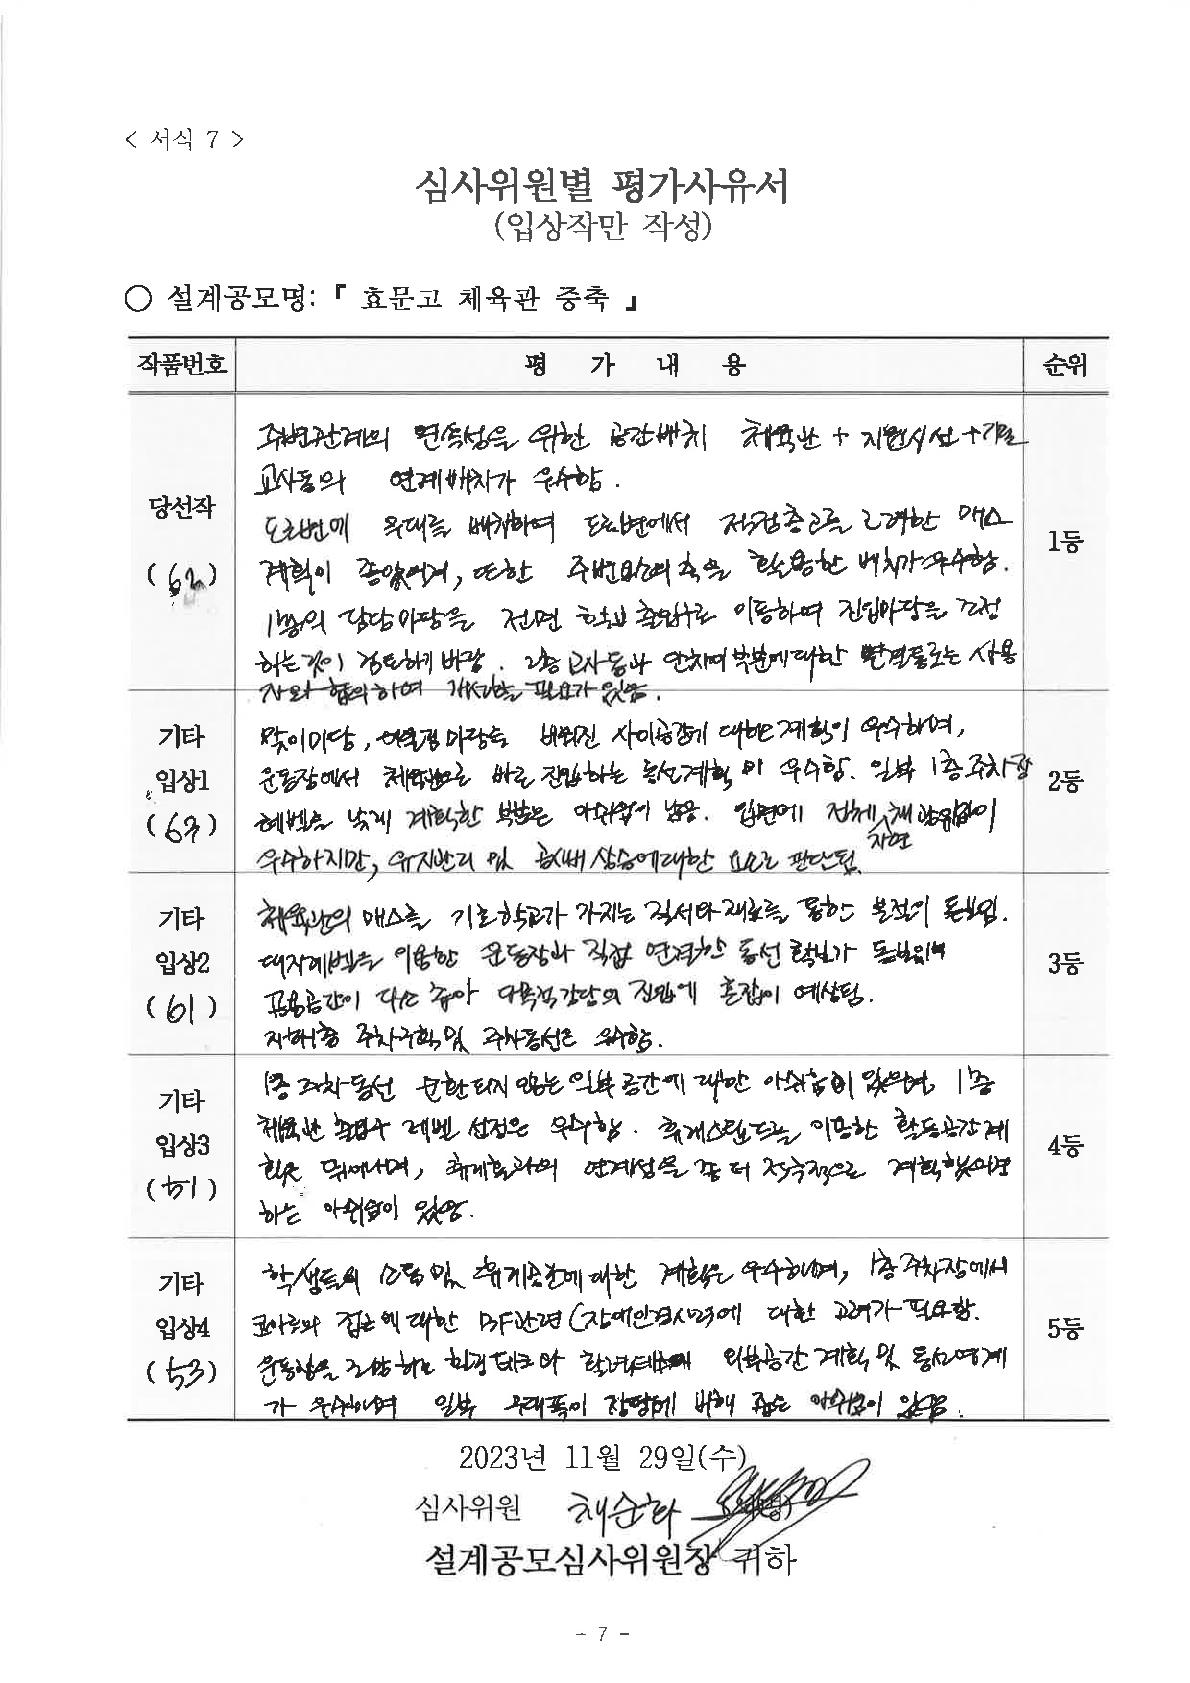 < 서식 7 >
심사위원별 평가사유서
(입상작만 작성)
○ 설계공모명:『 효문고 체육관 증축 』
작품번호 평 가 내 용 순위
당선작
(62)
주변관계의 연속성을 위한 공간배치 체육관 + 지원시설 + 기존
교사동의 연계배치가 우수함.
도로변에 무대를 배치하여 도로변에서 적정층고를 고려한 매스
계획이 좋았으며, 또한 주변 의 축을 활용한 배치가 우수함.
1층의 담당마당을 전면 출입구로 이동하여 진입마당을 조정
하는것이 검토하기 바람. 2층 교사동과 부분에대한 는 사용
자와 협의하여 개선할 필요가 있음.
1등
기타
입상1
(63)
맞이마당, 마당등 비워진 사이공간에 대한 계획이 우수하며,
운동장에서 체육관으로 바로 진입하는 동선계획이 우수함. 일부 1층 주차장
레벨을 낮게 계획한 부분은 아쉬움이 남음. 입면에 전체 자연채광유입이
우수하지만, 유지관리 및 상승에대한 요소로 판단됨.
2등
기타
입상2
(61)
체육관의 매스를 기존학교가 가지는 질서와 재료를 통한 분절이 돋보임.
대지레벨을 이용한 운동장과 직접 연결한 동선 확보가 돋보이며
공용공간이 다소 좁아 다목적강당의 진입에 혼잡이 예상됨.
주차구획 및 주차동선은 우수함.
3등
기타
입상3
(51)
1층 주차동선 순환되지 않는 일부 공간에 대한 아쉬움이 있으며, 1층
체육관 출입구 레벨 설정은 우수함. 휴게스탠드를 이용한 활동공간계
획은 뛰어나며, 과의 연계성을 좀 더 적극적으로 계획했으면
하는 아쉬움이 있음.
4등
기타
입상4
(53)
학생들의 소통 및 휴게공간에 대한 계획은 우수하며, 1층 주차장에서
코아로의 접근에 대한 BF관련(장애인경사로)에 대한 고려가 필요함.
운동장을 조망하는 데크와 외부공간 계획 및 동선연계
가 우수하며 일부 무대폭이 장방에 비해 좁은 아쉬움이 있음.
5등
2023년 11월 29일(수)
심사위원 채순화
설계공모심사위원장 귀하
- 7 -